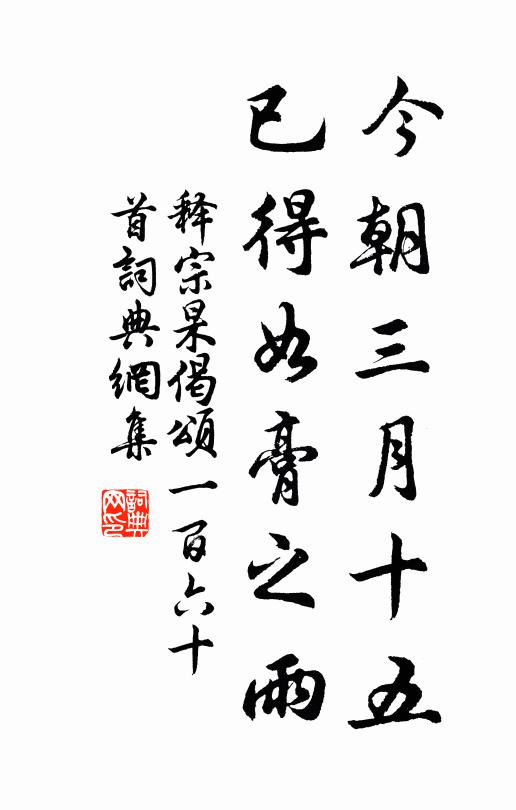 今朝三月十五
已得如膏之雨
释宗杲偈頌一百六十
首詞典網集
詞典
网印